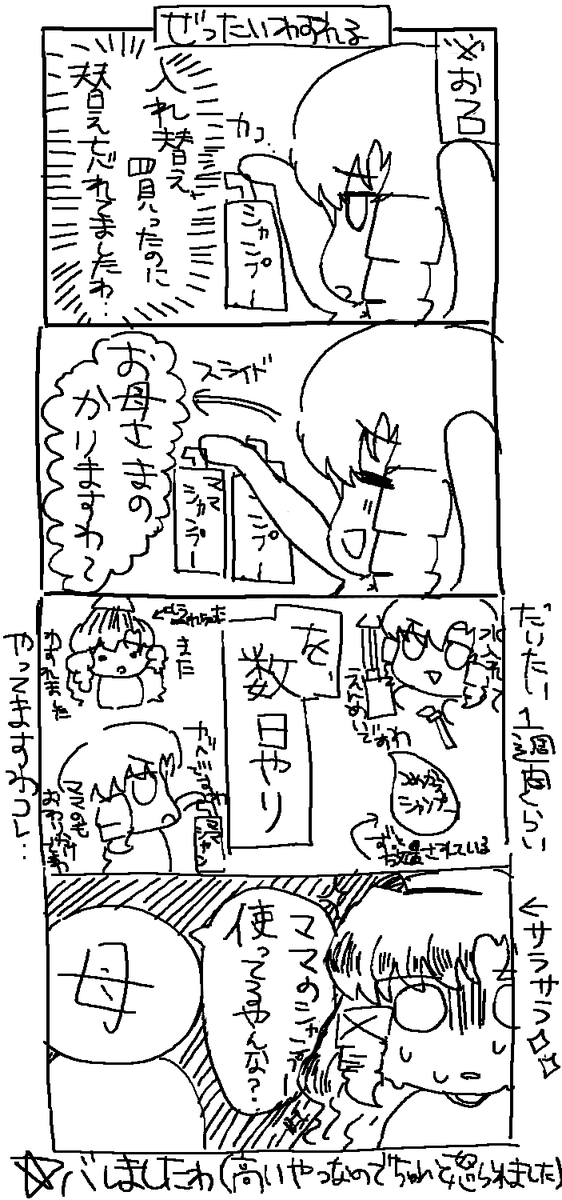 ぜったいわすれる
※お風呂
カコ…
シャンプー
入れ替え
買ったのに
替え忘れてましたわ…
スライド
シャンプー
ママ
シャンプー
お母さまの
かりますわ〜
だいたい1週間くらい
水入れて
つめかえ
シャンプー
ずっと
放置されている
を、
数日やり
また
わすれました
ママのも
ママ
シャン
やってますわコレ…
←サラサラ
ママのシャンプー
使ってるやんな？
母
☆バレましたわ(高いやつなのでちゃんと怒られました)